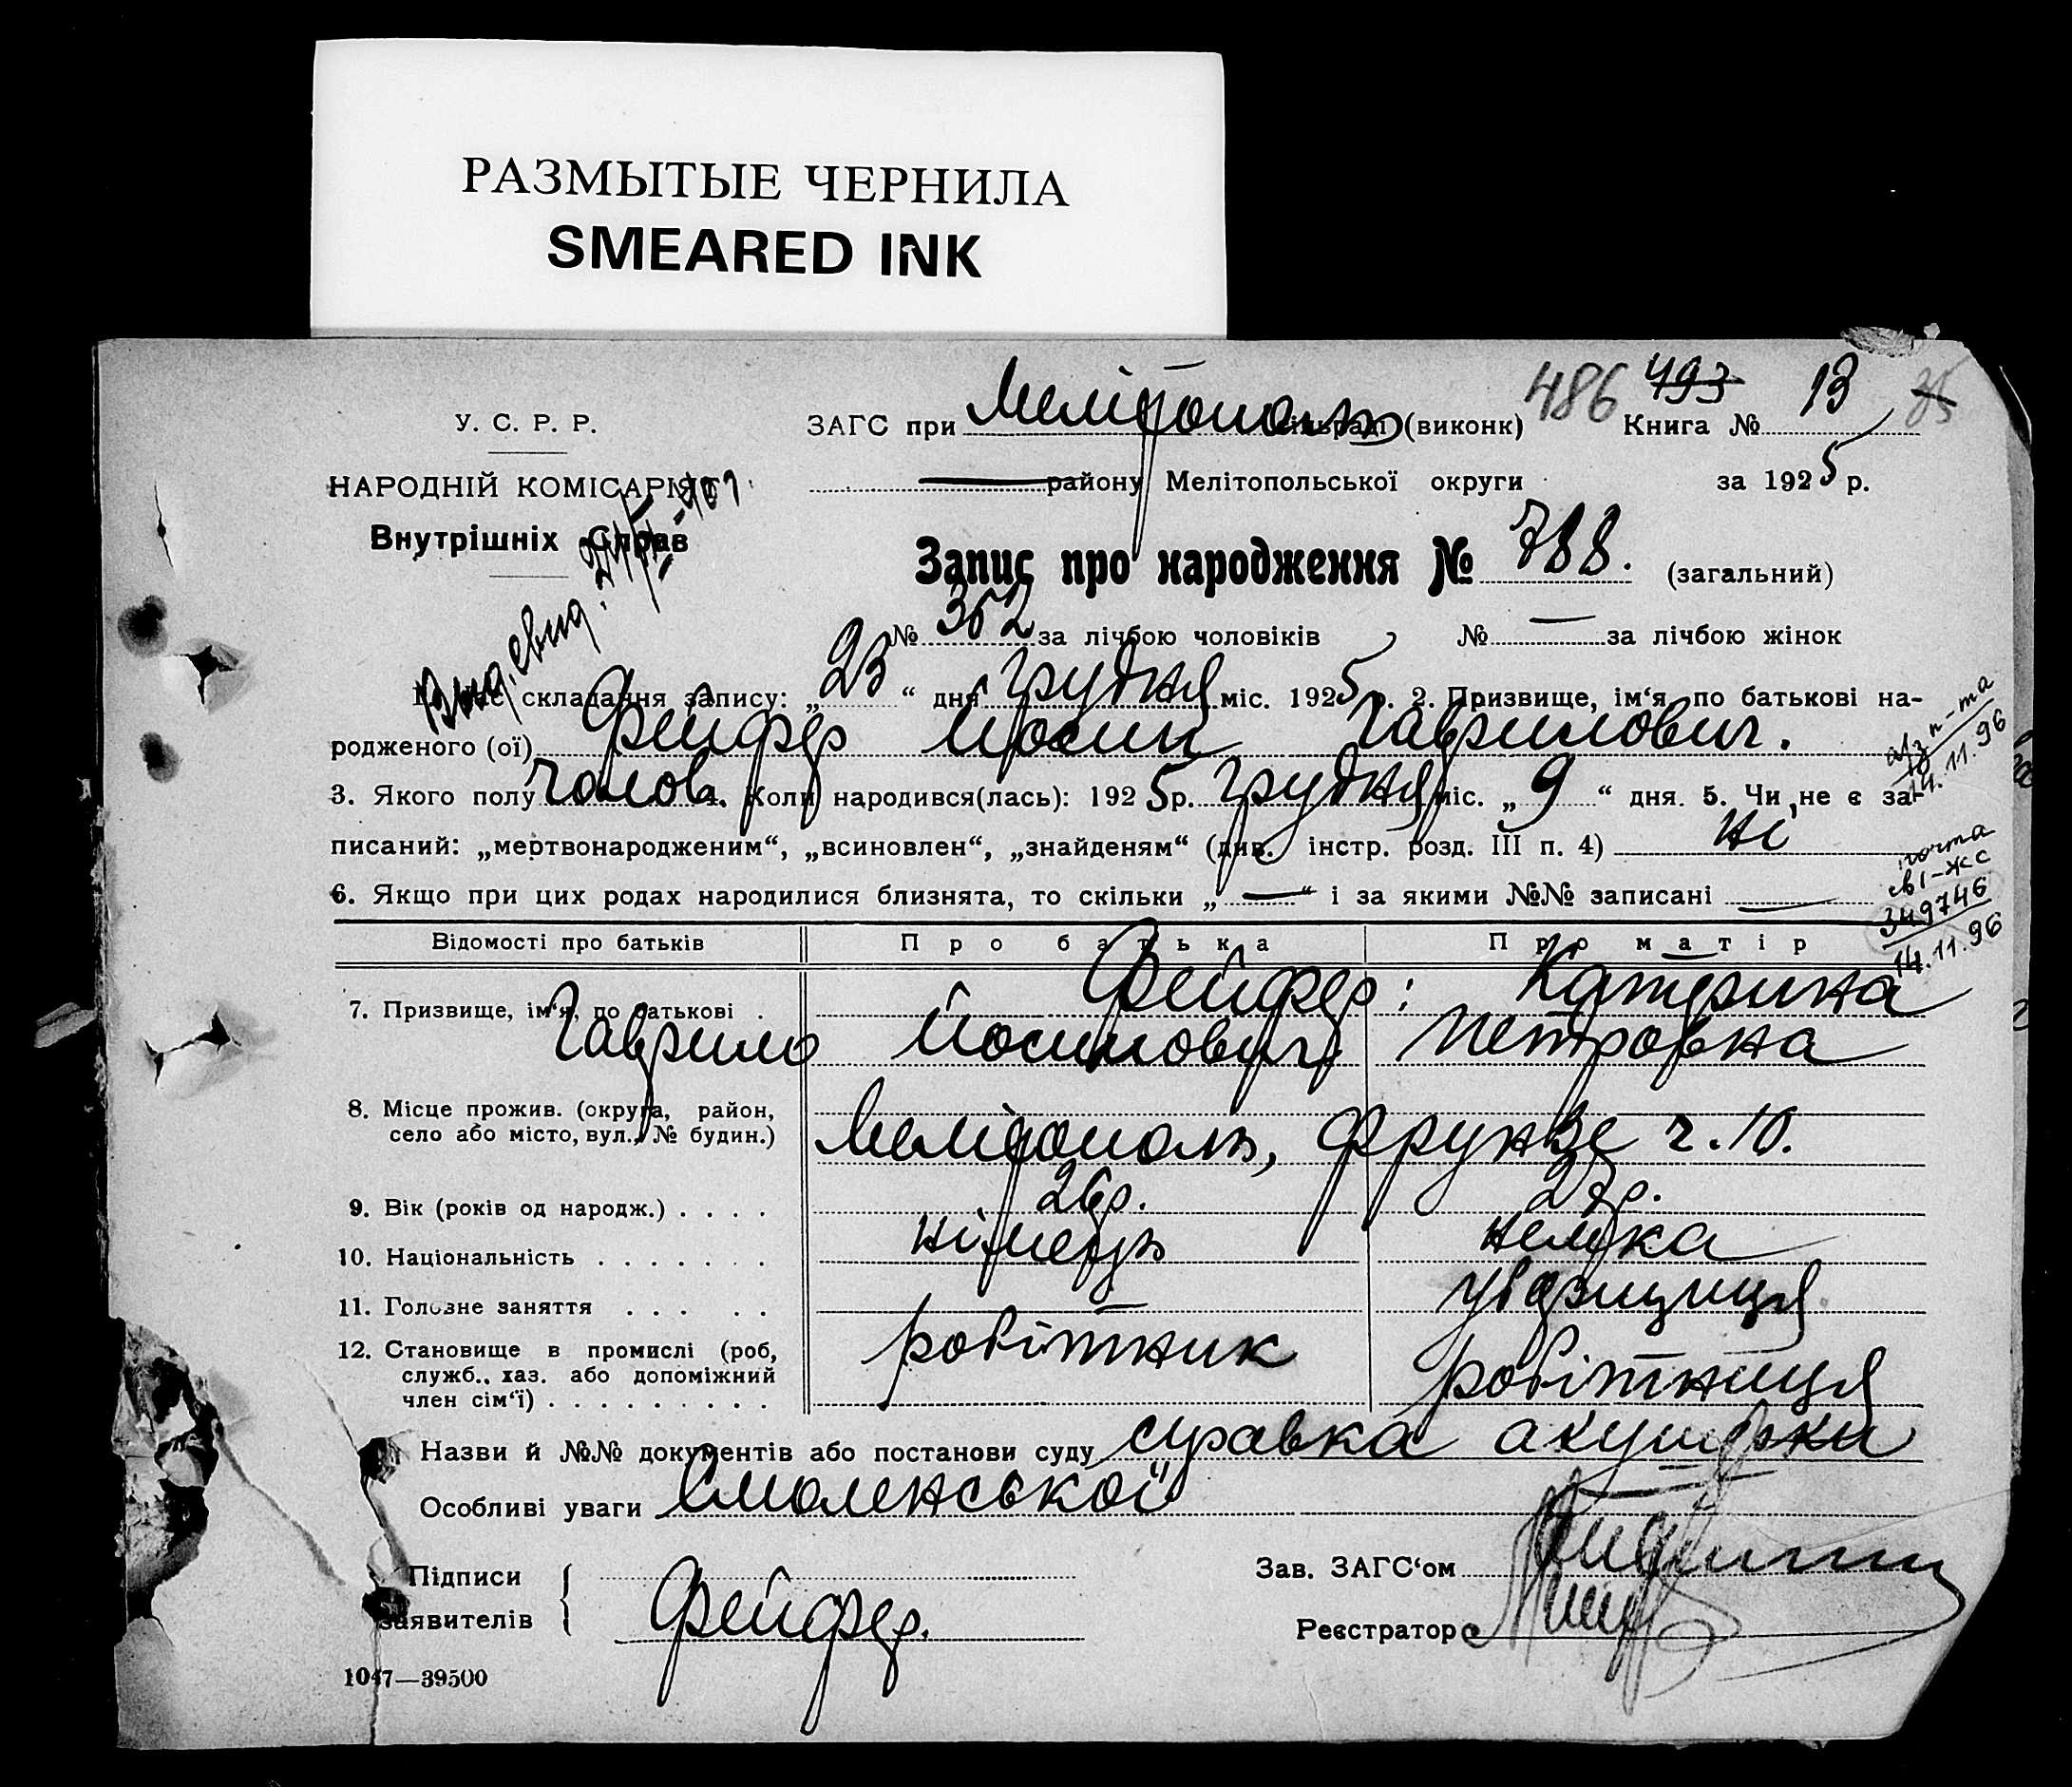 РАЗМЫТЫЕ ЧЕРНИЛА
SMEARED INK
У. С. Р. Р.
НАРОДНІЙ КОМІСАРІЯТ
Внутрішніх Справ
ЗАГС при Мелітополь сільраді (виконк) 486 493 Книга № 13 35
району Мелітопольської округи за 1925 р.
Запис про народження № 788. (загальний)
№ 362 за лічбою чоловіків № — за лічбою жінок
складання запису: „23“ дня грудня міс. 1925 р. 2. Призвище, ім‘я, по батькові на-
родженого (ої) Фейфер Йосип Гаврилович.
3. Якого полу чолов. 4. Коли народився(лась): 1925 р. грудня міс. „9“ дня. 5. Чи не є за-
писаний: „мертвонародженим“, „всиновлен“, „знайденям“ (див. інстр. розд. III п. 4) ні
6. Якщо при цих родах народилися близнята, то скільки „—“ і за якими №№ записані —
14.11.96
почта
349746
14.11.96
Відомості про батьків Про батька Про матір
7. Призвище, ім‘я, по батькові . Фейфер: Катерина
Гаврило Йосипович Петровна
8. Місце прожив. (округа, район,
село або місто, вул., № будин.) Мелітополь, Фрунзе ч. 10.
9. Вік (років од народж.) . . . . 26 р. 27 р.
10. Національність . . . . . . . німець немка
11. Головне заняття . . . . .
12. Становище в промислі (роб, робітник робітниця
служб., хаз. або допоміжний
член сім‘ї) . . . . . . . . .
Назви й №№ документів або постанови суду справка акушерки
Особливі уваги Смоленської
Підписи
заявителів Фейфер.
Зав. ЗАГС‘ом
Реєстратор
1047—39500